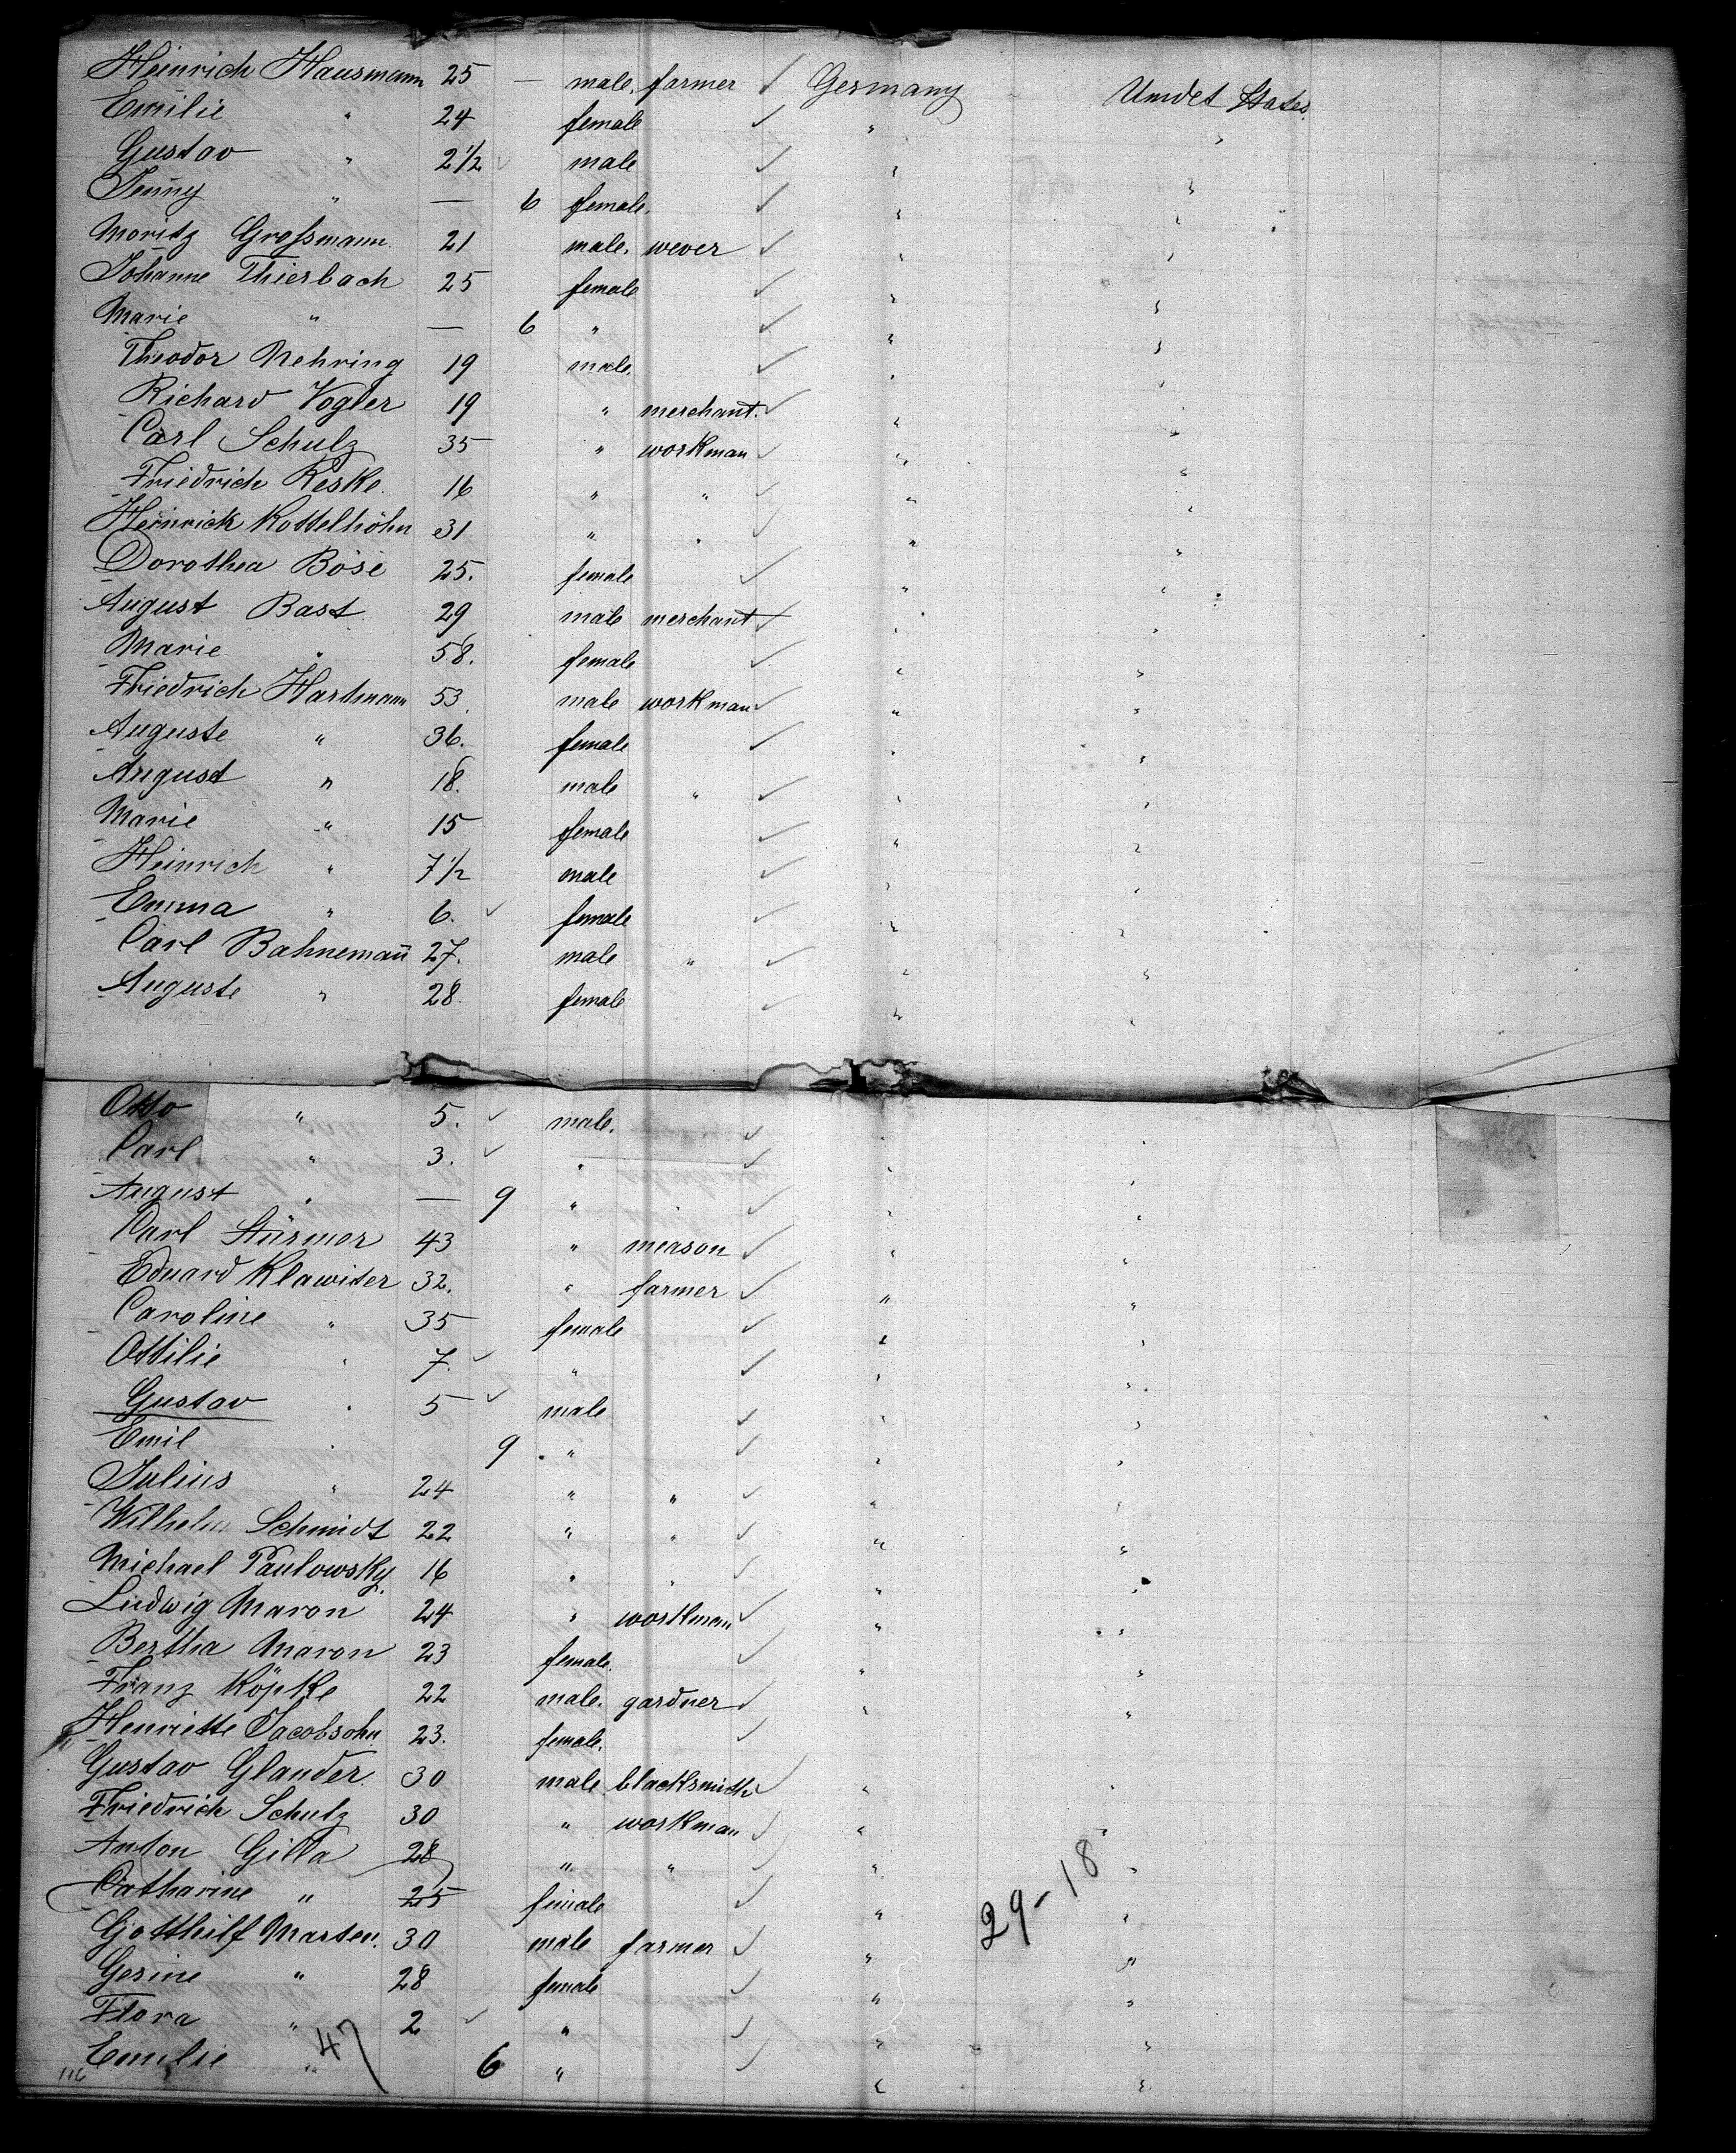 Heinrich Hausmann 25 — male. farmer ✓ Germany Unidet States.
Emilie " 24 female ✓ " "
Gustav " 2 1/2 ✓ male ✓ " "
Jenny " — 6 female. ✓ " "
Moritz Großmann. 21 male. wever ✓ " "
Johanne Thierbach 25 female ✓ " "
Marie " — 6 " ✓ " "
Theodor Nehring 19 male. ✓ " "
Richard Vogler 19 " merchant. ✓ " "
Carl Schulz 35 " workman ✓ " "
Friedrich Reske. 16 " " ✓ " "
Heinrick Kottelhöhn 31 " " ✓ " "
Dorothea Böse 25. female ✓ " "
August Bast 29 male merchant ✓ " "
Marie " 58. female ✓ " "
Friedrich Hartmann 53. male workman ✓ " "
Auguste " 36. female ✓ " "
August " 18. male " ✓ " "
Marie " 15 female ✓ " "
Heinrich " 7 1/2 male ✓ " "
Emma " 6. ✓ female ✓ " "
Carl Bahnemañ 27. male " ✓ " "
Auguste " 28. female ✓ " "
Otto " 5. ✓ male. ✓ " "
Carl " 3. ✓ " ✓ " "
August " — 9 " ✓ " "
Carl Stürmer 43 " meason ✓ " "
Eduard Klawiter 32. " farmer ✓ " "
Caroline " 35 female ✓ " "
Ottilie " 7. ✓ " ✓ " "
Gustav " 5 ✓ male ✓ " "
Emil " 9 " ✓ " "
Julius " 24 " " ✓ " "
Wilhelm Schmidt 22 " " ✓ " "
Michael Paulowsky. 16 " " ✓ " "
Ludwig Maron 24 " workman ✓ " "
Bertha Maron 23 female. ✓ " "
Franz Köpke 22 male. gardner ✓ " "
Henriette Jacobsohn 23. female. ✓
Gustav Glander. 30 male. blacksmith ✓ " "
Friedrich Schulz 30 " workman ✓ " "
Anton Gilla 28 " " ✓ " "
Catharine " 25 female ✓ " "
29-18
Gotthilf Marten. 30 male farmer ✓ " "
Gesine " 28 female ✓ " "
Flora " 2 ✓ " ✓ " "
Emilie " 6 " ✓ " "
47
116